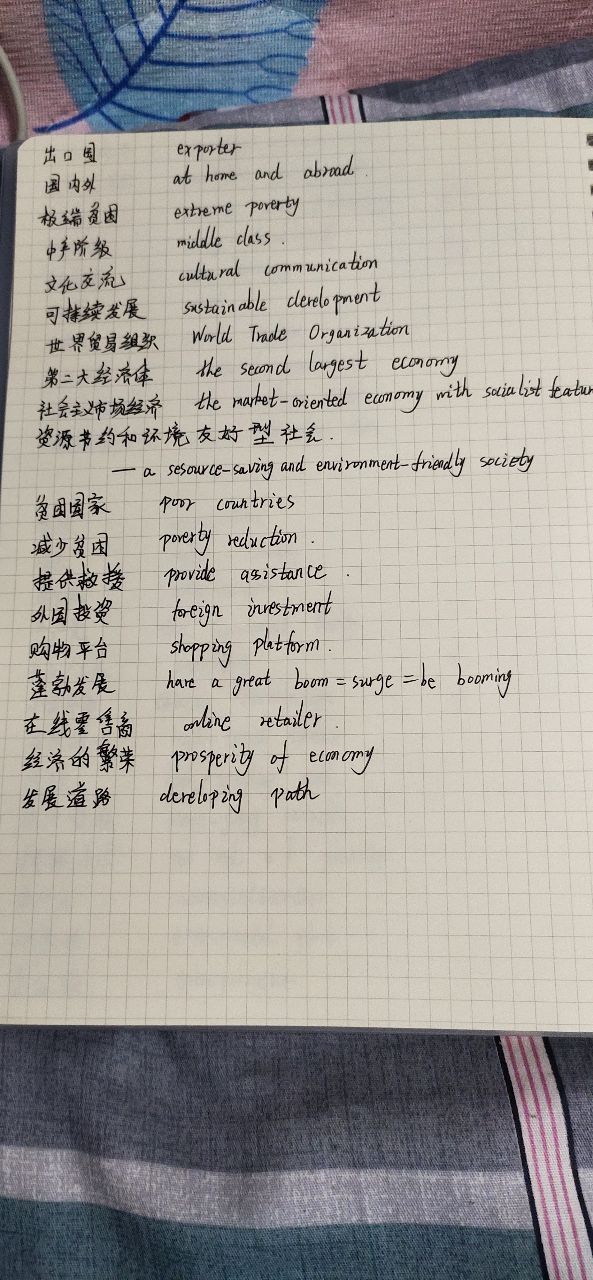 出口国 exporter
国内外 at home and abroad.
极端贫困 extreme poverty
中产阶级 middle class.
文化交流 cultural communication
可持续发展 sustainable development
世界贸易组织 World Trade Organization
第二大经济体 the second largest economy
社会主义市场经济 the market-oriented economy with socialist featur
资源节约和环境友好型社会.
— a sesource-saving and environment-friendly society
贫困国家 poor countries
减少贫困 poverty reduction.
提供救援 provide assistance.
外国投资 foreign investment
购物平台 shopping platform.
蓬勃发展 have a great boom = surge = be booming
在线零售商 online retailer.
经济的繁荣 prosperity of economy
发展道路 developing path